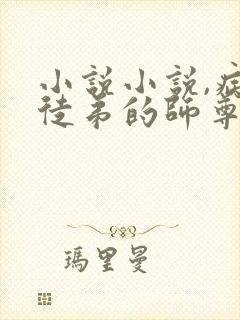 小說小說,病
徒弟的師尊
瑪里曼